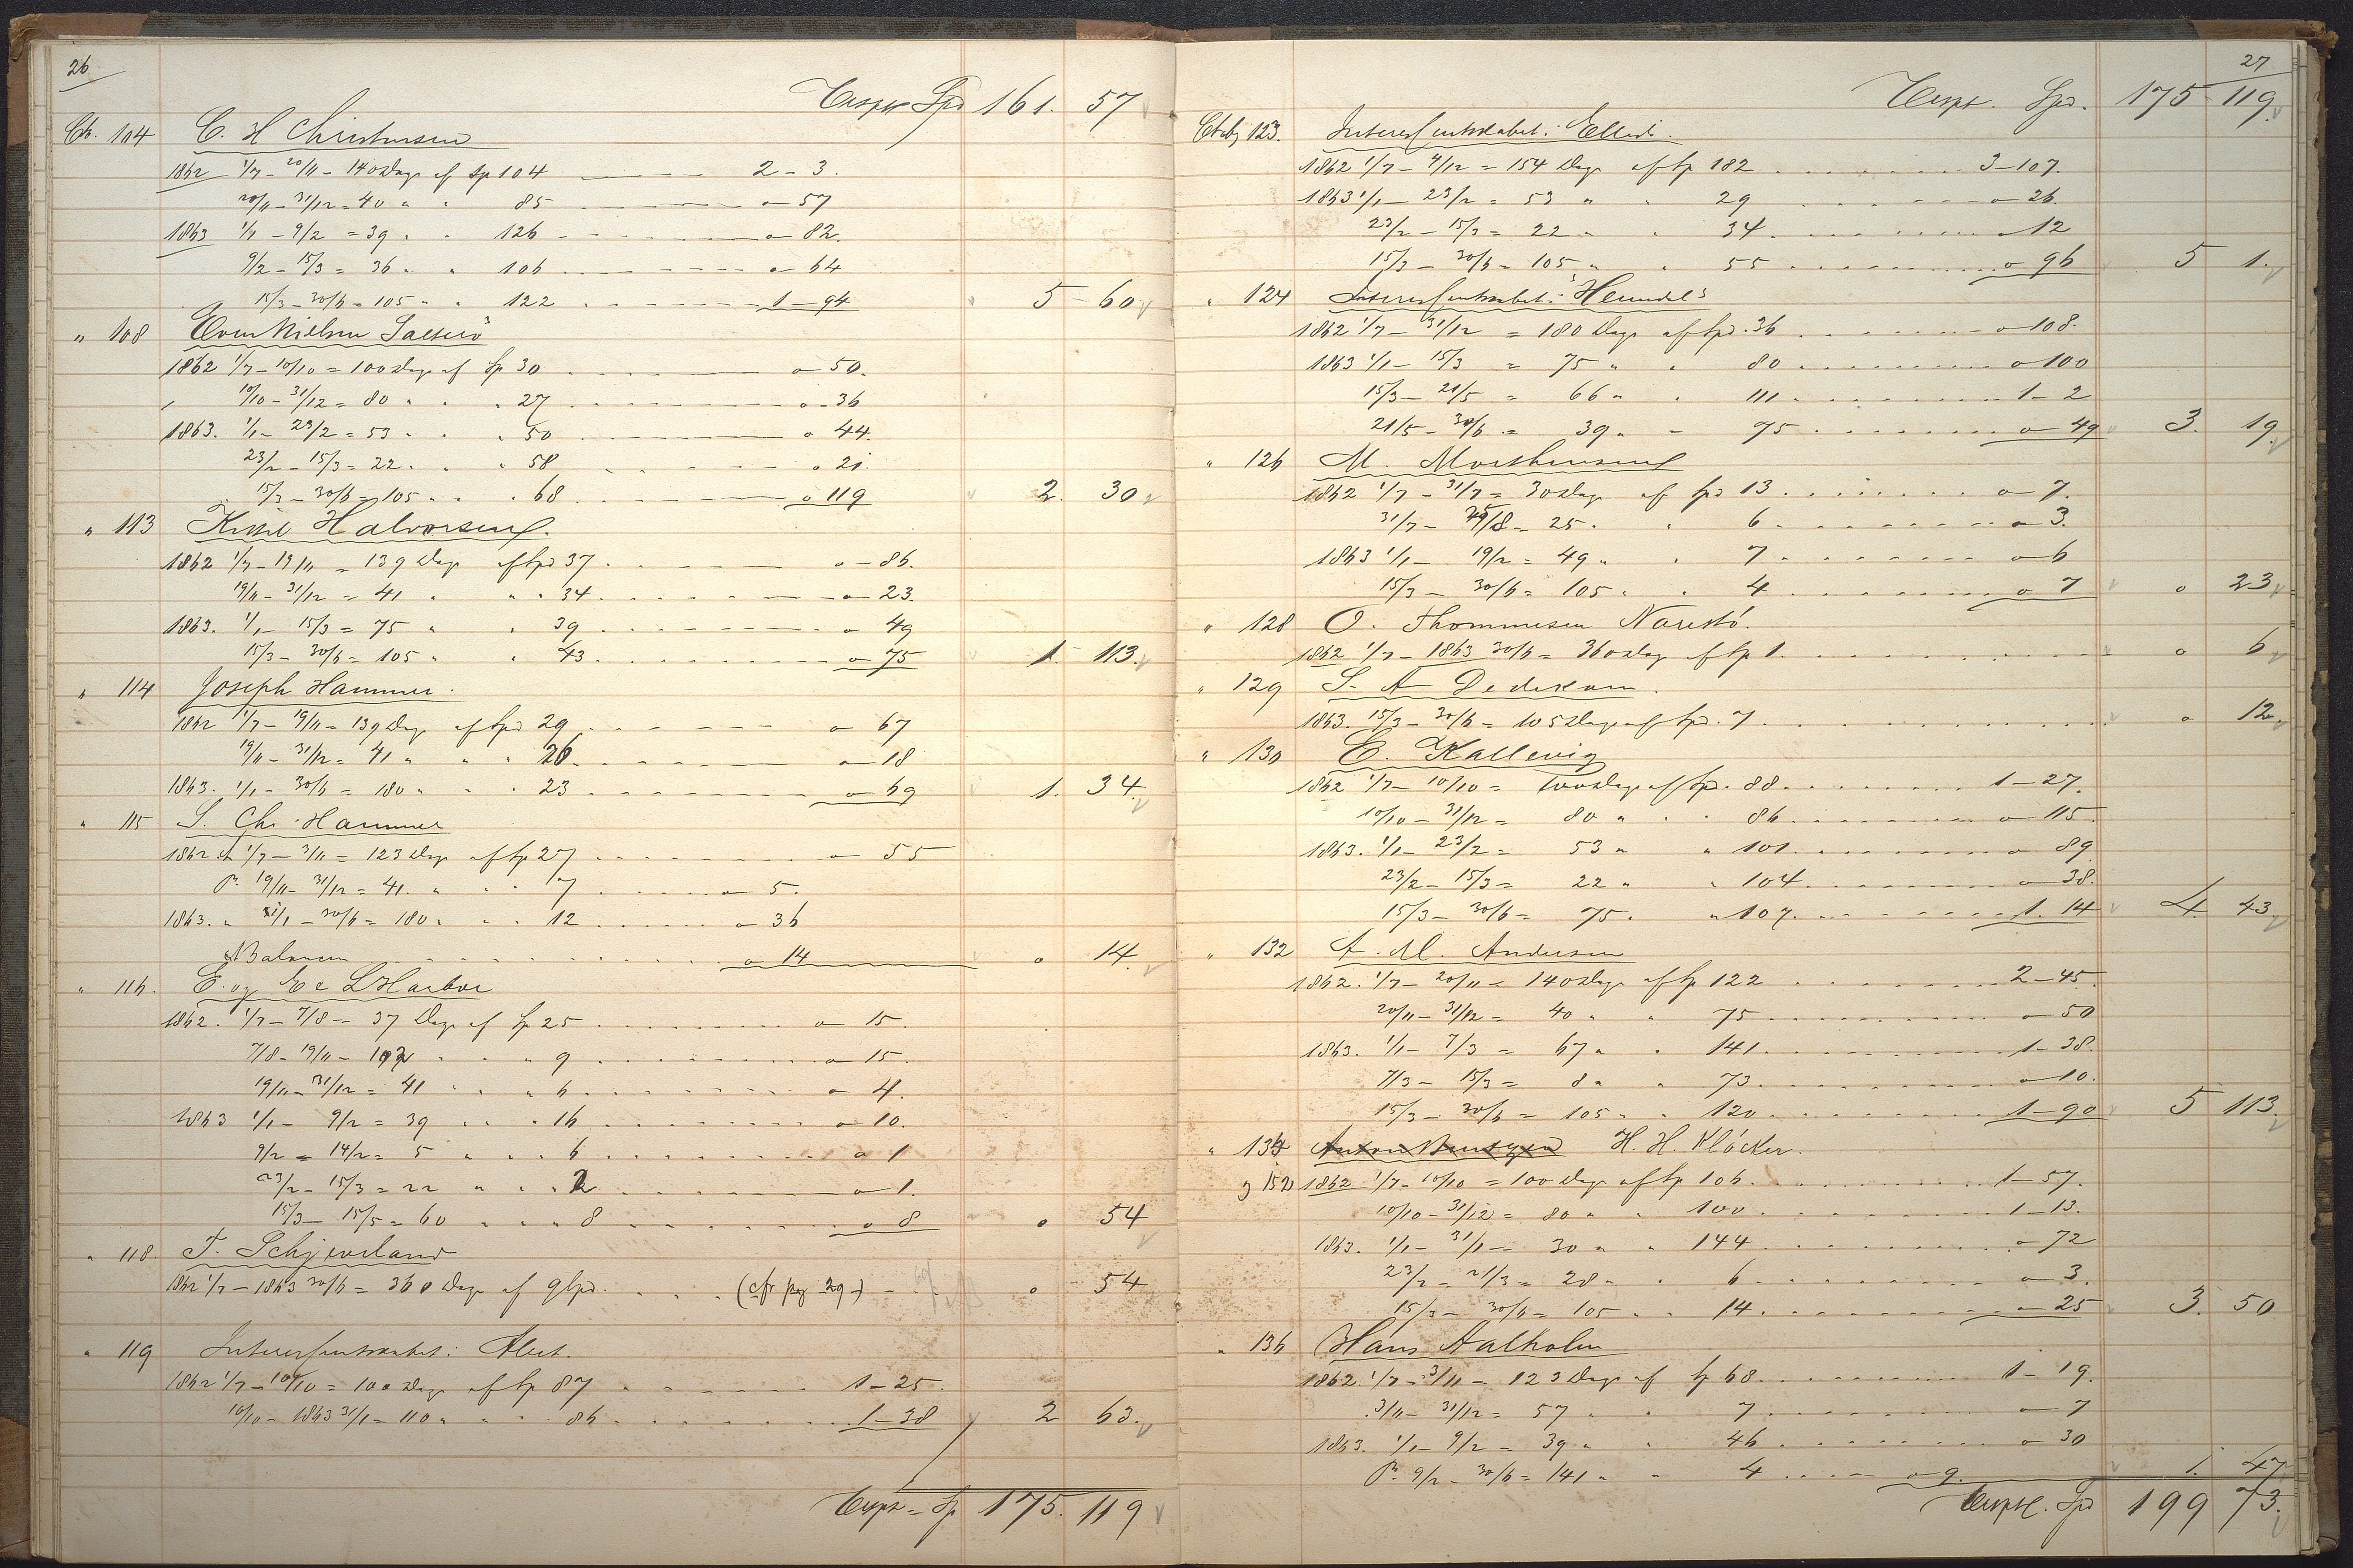 26
Transpt Spd 161. 57
Cto. 104 C. H Christensen
1862 1/7 - 20/11 - 140 Dage af Sp 104 2 - 3.
20/11 - 31/12 = 40 " " 85 o - 57
1863 1/1 - 9/2 = 39 " " 126 o - 82.
9/2 - 15/3 = 36 " " 106 o - 64
15/3 - 30/6 = 105 " " 122 1 - 94 5 - 60
" 108 Even Nielsen Salterö
1862 1/7 - 10/10 = 100 Dage af Sp 30 o - 50.
10/10 - 31/12 = 80 " " 27 o - 36
1863. 1/1 - 23/2 = 53 " " 50 o 44.
23/2 - 15/3 = 22 " " 58 o 21.
15/3 - 30/6 = 105 " " 68 o 119 2. 30
" 113 Kittil Halvorsen.
1862 1/7 - 19/11 = 139 Dage af Spd 37 o - 86.
19/11 - 31/12 = 41 " " 34 o - 23.
1863. 1/1 - 15/3 = 75 " " 39 o - 49
15/3 - 30/6 = 105 " " 43 o - 75 1. 113.
" 114 Joseph Hammer.
1862 1/7 - 19/11 = 139 Dage af Spd 29 o - 67
19/11 - 31/12 = 41 " " 26 o - 18
1863. 1/1 - 30/6 = 180 " " 23 o - 69 1. 34.
" 115 S. Chr. Hammer
1862 1/7 - 3/11 = 123 Dage af Sp 27 o - 55
19/11 - 31/12 = 41 " " 7 o - 5.
1863. " 1/1 - 30/6 = 180 " " 12 o - 36
Balancen o 14 o 14.
" 116. E. og Ec L Harboe
1862. 1/7 - 7/8 - 37 Dage af Sp 25 o 15.
7/8 - 19/11 - 102 " " 9 o 15.
19/11 - 31/12 = 41 " " 6 o 4.
1863 1/1 - 9/2 = 39 " " 16 o 10.
9/2 - 14/2 = 5 " " 6 o 1
23/2 - 15/3 = 22 " " 2 o 1.
15/3 - 15/5 = 60 " " 8 o 8 o 54
" 118. T. Schjeveland
1862 1/7 - 1863 30/6 = 360 Dage af 9 Spd. (cfr pag 29) o 54
" 119 Interessentskabet: Alert.
1862 1/7 - 10/10 = 100 Dage af Sp 87 1 - 25.
10/10 - 1863 31/1 = 110 " " 86 1 - 38 2 63.
Transpt = Sp 175. 119
27
Transpt. Spd. 175 119.
Ctobog 123. Interessentskabet: Ellida.
1862 1/7 - 4/12 = 154 Dage af Sp 182 3 - 107.
1863 1/1 - 23/2 = 53 " " 29 o - 26.
23/2 - 15/3 = 22 " " 34 o 12
15/3 - 30/6 = 105 " " 55 o 96 5 1.
" 124 Interessentskabet: Heimdal
1862 1/7 - 31/12 = 180 Dage af Spd. 36 o - 108.
1863 1/1 - 15/3 = 75 " " 80 o 100
15/3 - 21/5 = 66 " " 111 1 - 2
21/5 - 30/6 = 39 " " 75 o 49 3. 19
" 126 M. Morthensen
1862 1/7 - 31/7 = 30 Dage af Spd 13 o - 7.
31/7 - 25/8 = 25 " " 6 o 3.
1863 1/1 - 19/2 = 49 " " 7 o 6
15/3 - 30/6 = 105 " " 4 o 7 o 23
" 128 O. Thommesen Narestö.
1862 1/7 - 1863 30/6 = 360 Dage af Sp 1. o 6
" 129 S. A Dedekam.
1863. 15/3 - 30/6 = 105 Dage af Spd. 7 o 12
" 130 E. Kallevig
1862 1/7 - 10/10 = 100 Dage af Spd. 88 1 - 27.
10/10 - 31/12 = 80 " " 86 o - 115.
1863. 1/1 - 23/2 = 53 " " 101 o 89.
23/2 - 15/3 = 22 " " 104 o - 38.
15/3 - 30/6 = 75 " " 107 1. 14 4. 43.
" 132 A. M. Andersen
1862. 1/7 - 20/11 = 140 Dage af Sp 122 2 - 45.
20/11 - 31/12 = 40 " " 75 o - 50
1863. 1/1 - 7/3 = 67 " " 141 1 - 38.
7/3 - 15/3 = 8 " " 73 o - 10.
15/3 - 30/6 = 105 " " 120 1 - 90 5 113.
" 134 Anton Bentzen H. H. Klöcker.
g 152 1862 1/7 - 10/10 = 100 Dage af Sp 106 1 - 57.
10/10 - 31/12 = 80 " " 100 1 - 13.
1863. 1/1 - 31/1 - 30 " " 144 o 72
23/2 - 21/3 = 28 " " 6 o 3.
15/3 - 30/6 = 105 " " 14 o 25 3. 50
" 136 Hans Aalholm
1862. 1/7 - 3/11 - 123 Dage af Sp 68 1 - 19.
3/11 - 31/12 = 57 " " 7 o 7
1863. 1/1 - 9/2 = 39 " " 46 o 30
9/2 - 30/6 = 141 " " 4 o 9. 1. 47
Transpt. Spd 199 73.